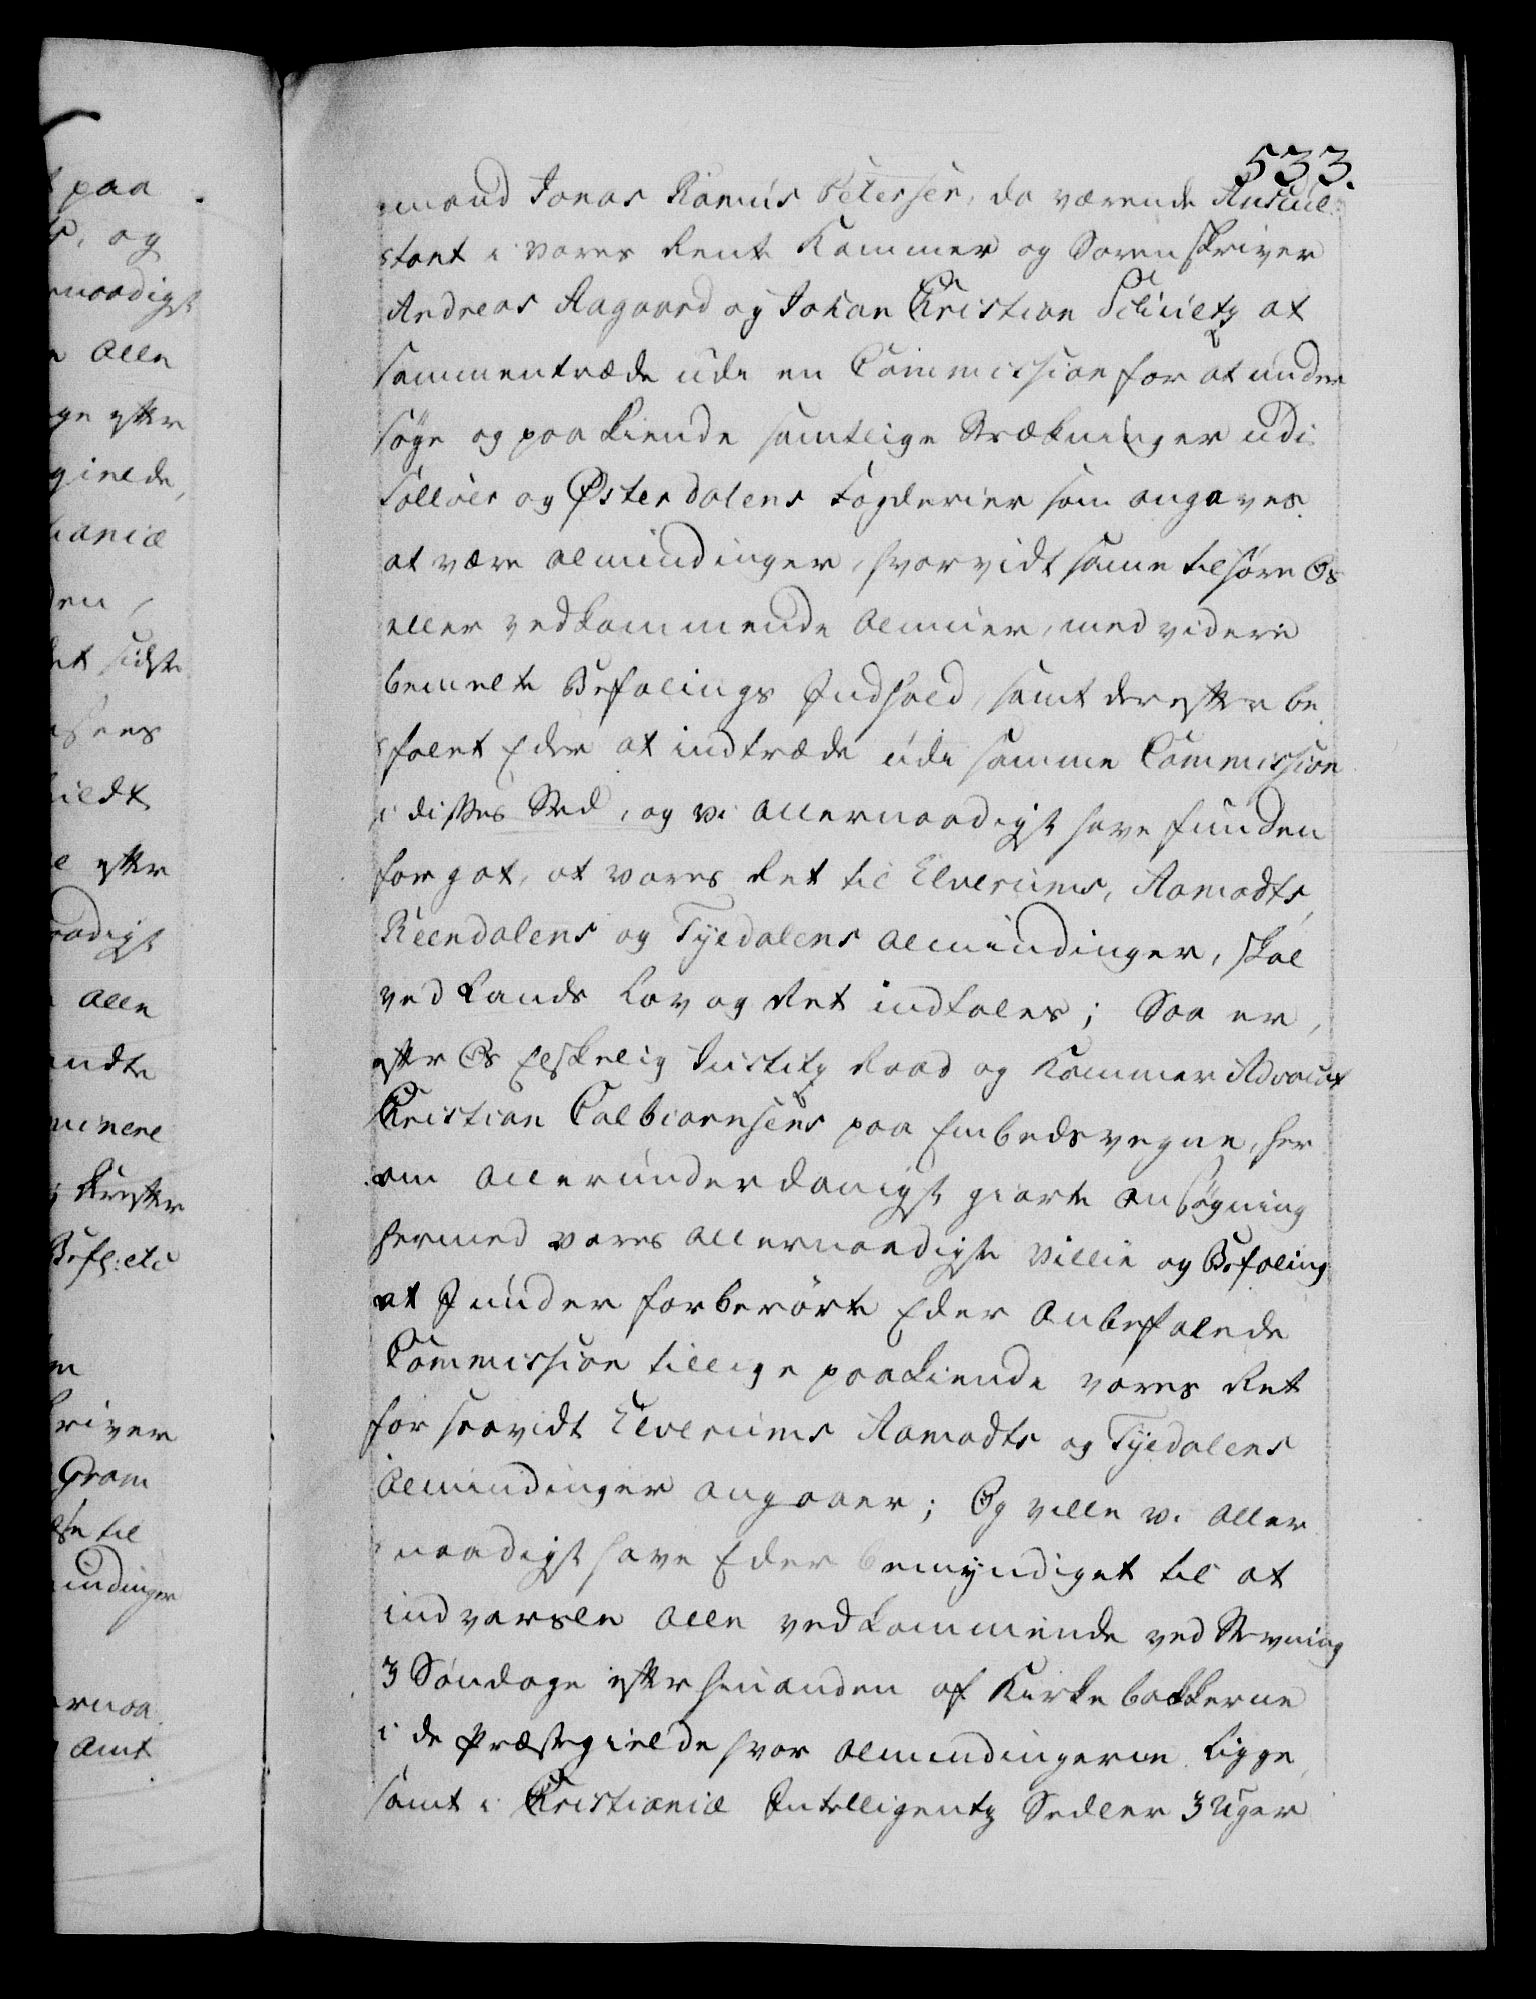 533.
mand Jonas Ramus Petersen, da værende Auscul-
tant i vores Rente Kammer og Sorenskriver
Andreas Aagaard og Johan Christian Schultz at
sammentræde udi en Commission for at under
søge og paakiende samtlige Strækninger udi
Solløer og Østerdalens Fogderier som angaves
at være Almindinger, hvorvidt samme tilhøre Os
eller vedkommende Almuer, med videre
bemelte Befalings Indhold, samt derefter be
falet Eder at indtræde udi samme Commission
i disses Sted, og vi allernaadigst have funden
for got, at vores Ret til Elverums, Aamodts,
Reendalens og Tyedalens Almindinger, skal
ved Lands Lov og Ret indtales; Saa er,
efter Os Elskelig Justitz Raad og Kammer Advocat
Christian Colbiørnsens paa Embedsvegne, her
om allerunderdanigst giorte Ansøgning
hermed vores allernaadigste Villie og Befaling
at I under forberørte Eder anbefalede
Commission tillige paakiende vores Ret
for saavidt Elverums Aamodts og Tyedalens
Almindinger angaaer; Og ville vi aller
naadigst have Eder bemyndiget til at
indvarsle alle vedkommende ved Stevning
3 Søndage efter hinanden af Kirkebakkerne
i de Præstegielde hvor Almindingerne ligge,
samt i Christianiæ Intelligentz Sedler 3 Uger